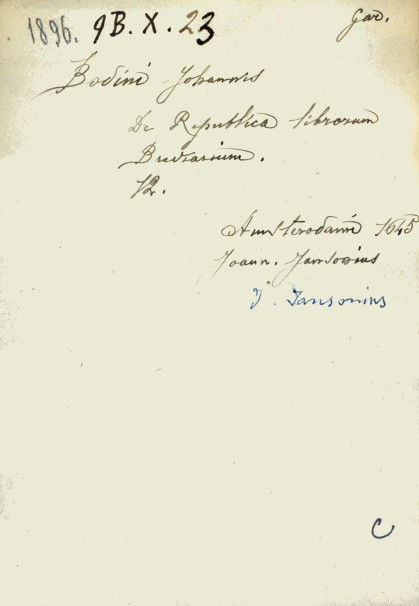 1896. 9B. X. 23 Gad.
Bodini Johannis
De Republica librorum
Breviarium.
12.
Amsterodami 1645
Joann. Jansonius
J. Jansonius
C